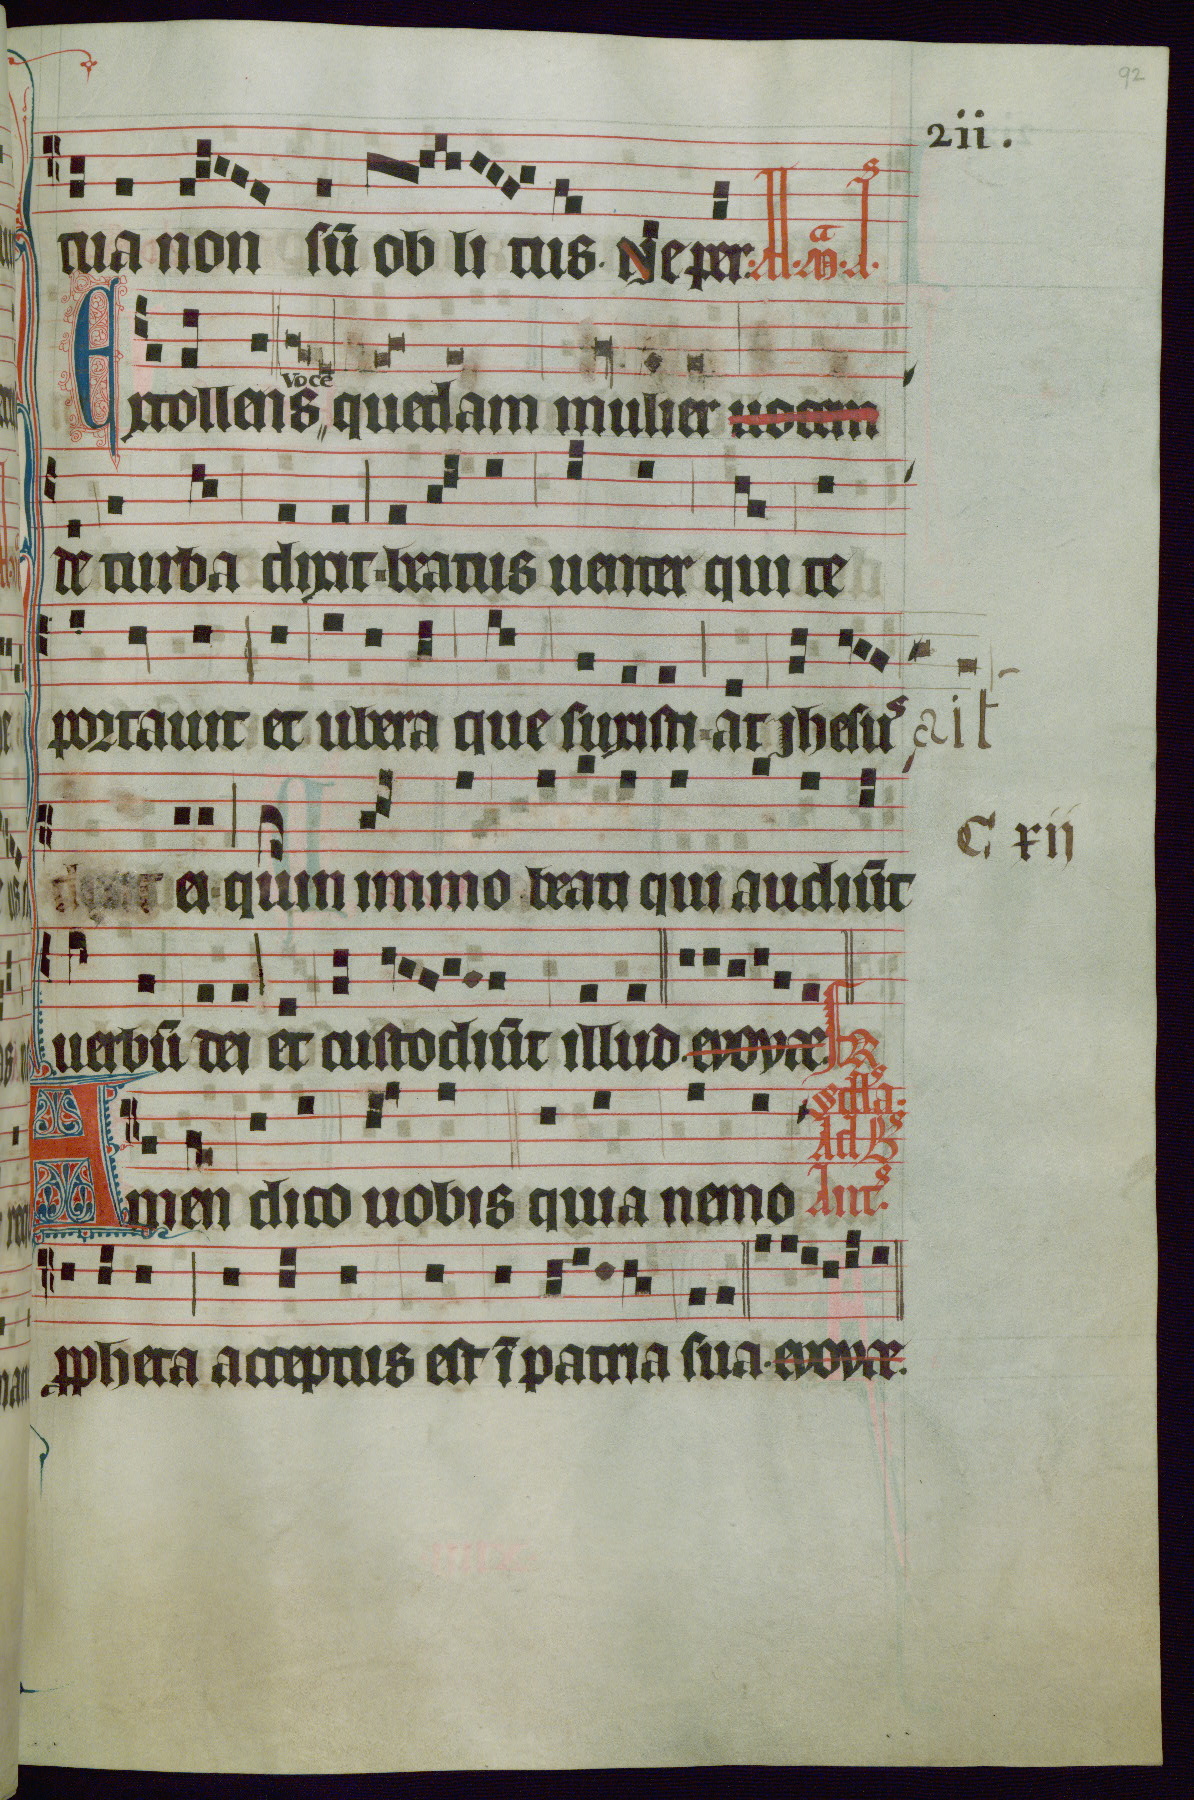 92
2ii.
tua non sū ob li tus. Ne per. Ad. M. A.
voce
Extollens quedam mulier uocem
de turba dixit. beatus uenter qui te
portauit et ubera que suxisti. at jhesus ait
dixit ei. quin immo beati qui audiūt
C xii
uerbū dei et custodiūt illud. evovae.
Ad B
Ant
Amen dico uobis quia nemo
ppheta acceptus est ī patria sua. evovae.